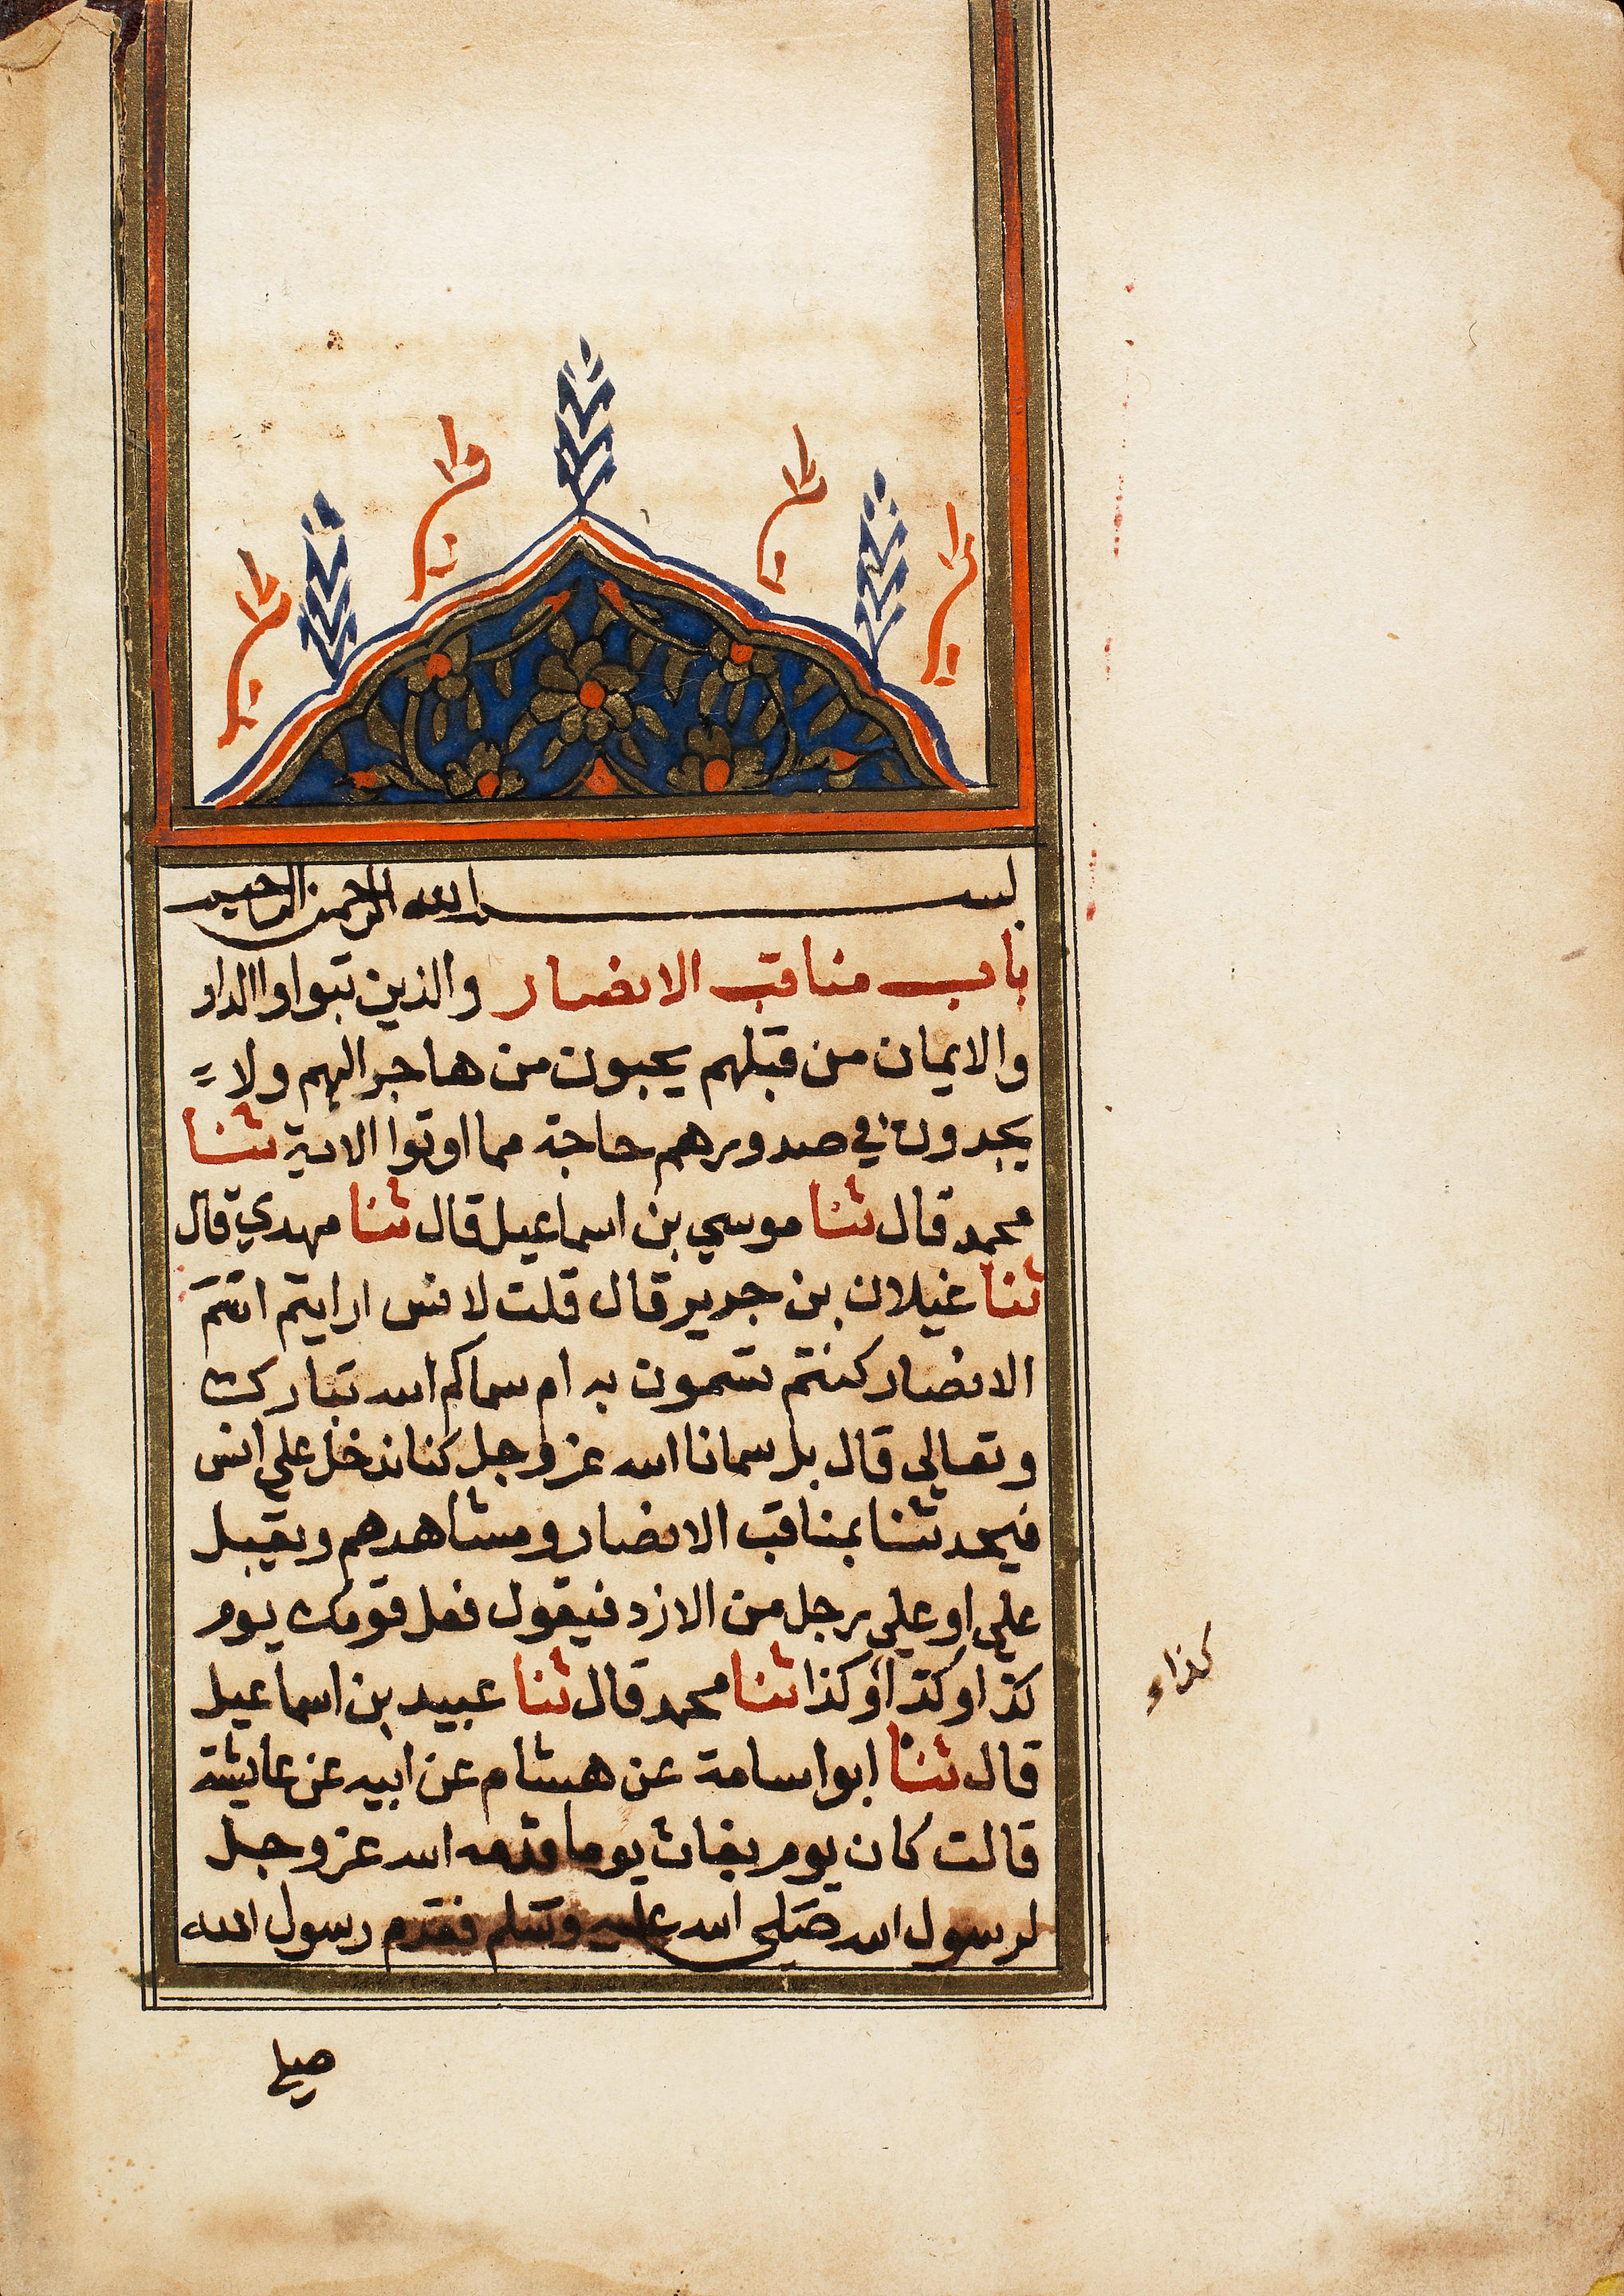 بسم الله الرحمن الرحيم
باب مناقب الانصار والذين تبواوا الدار
والايمان من قبلهم يحبون من هاجر اليهم ولا
يجدون في صدورهم حاجة مما اوتوا الاية ثنا
محمد قال ثنا موسي بن اسماعيل قال ثنا مهدي قال
ثنا غيلان بن جرير قال قلت لانس ارايتم اسم
الانصار كنتم تسمون به ام سماكم الله تبارك
وتعالي قال بل سمانا الله عز وجل كنا ندخل علي انس
فيحدثنا بمناقب الانصار ومشاهدهم ويقبل
علي او علي رجل من الازد فيقول فعل قومك يوم
كذا وكذا وكذا ثنا محمد قال ثنا عبيد بن اسماعيل
قال ثنا ابو اسامة عن هشام عن ابيه عن عايشة
قالت كان يوم بغاث يوما قدمه الله عز وجل
لرسول الله صلي الله عليه وسلم فقدم رسول الله
صلي
كذاء